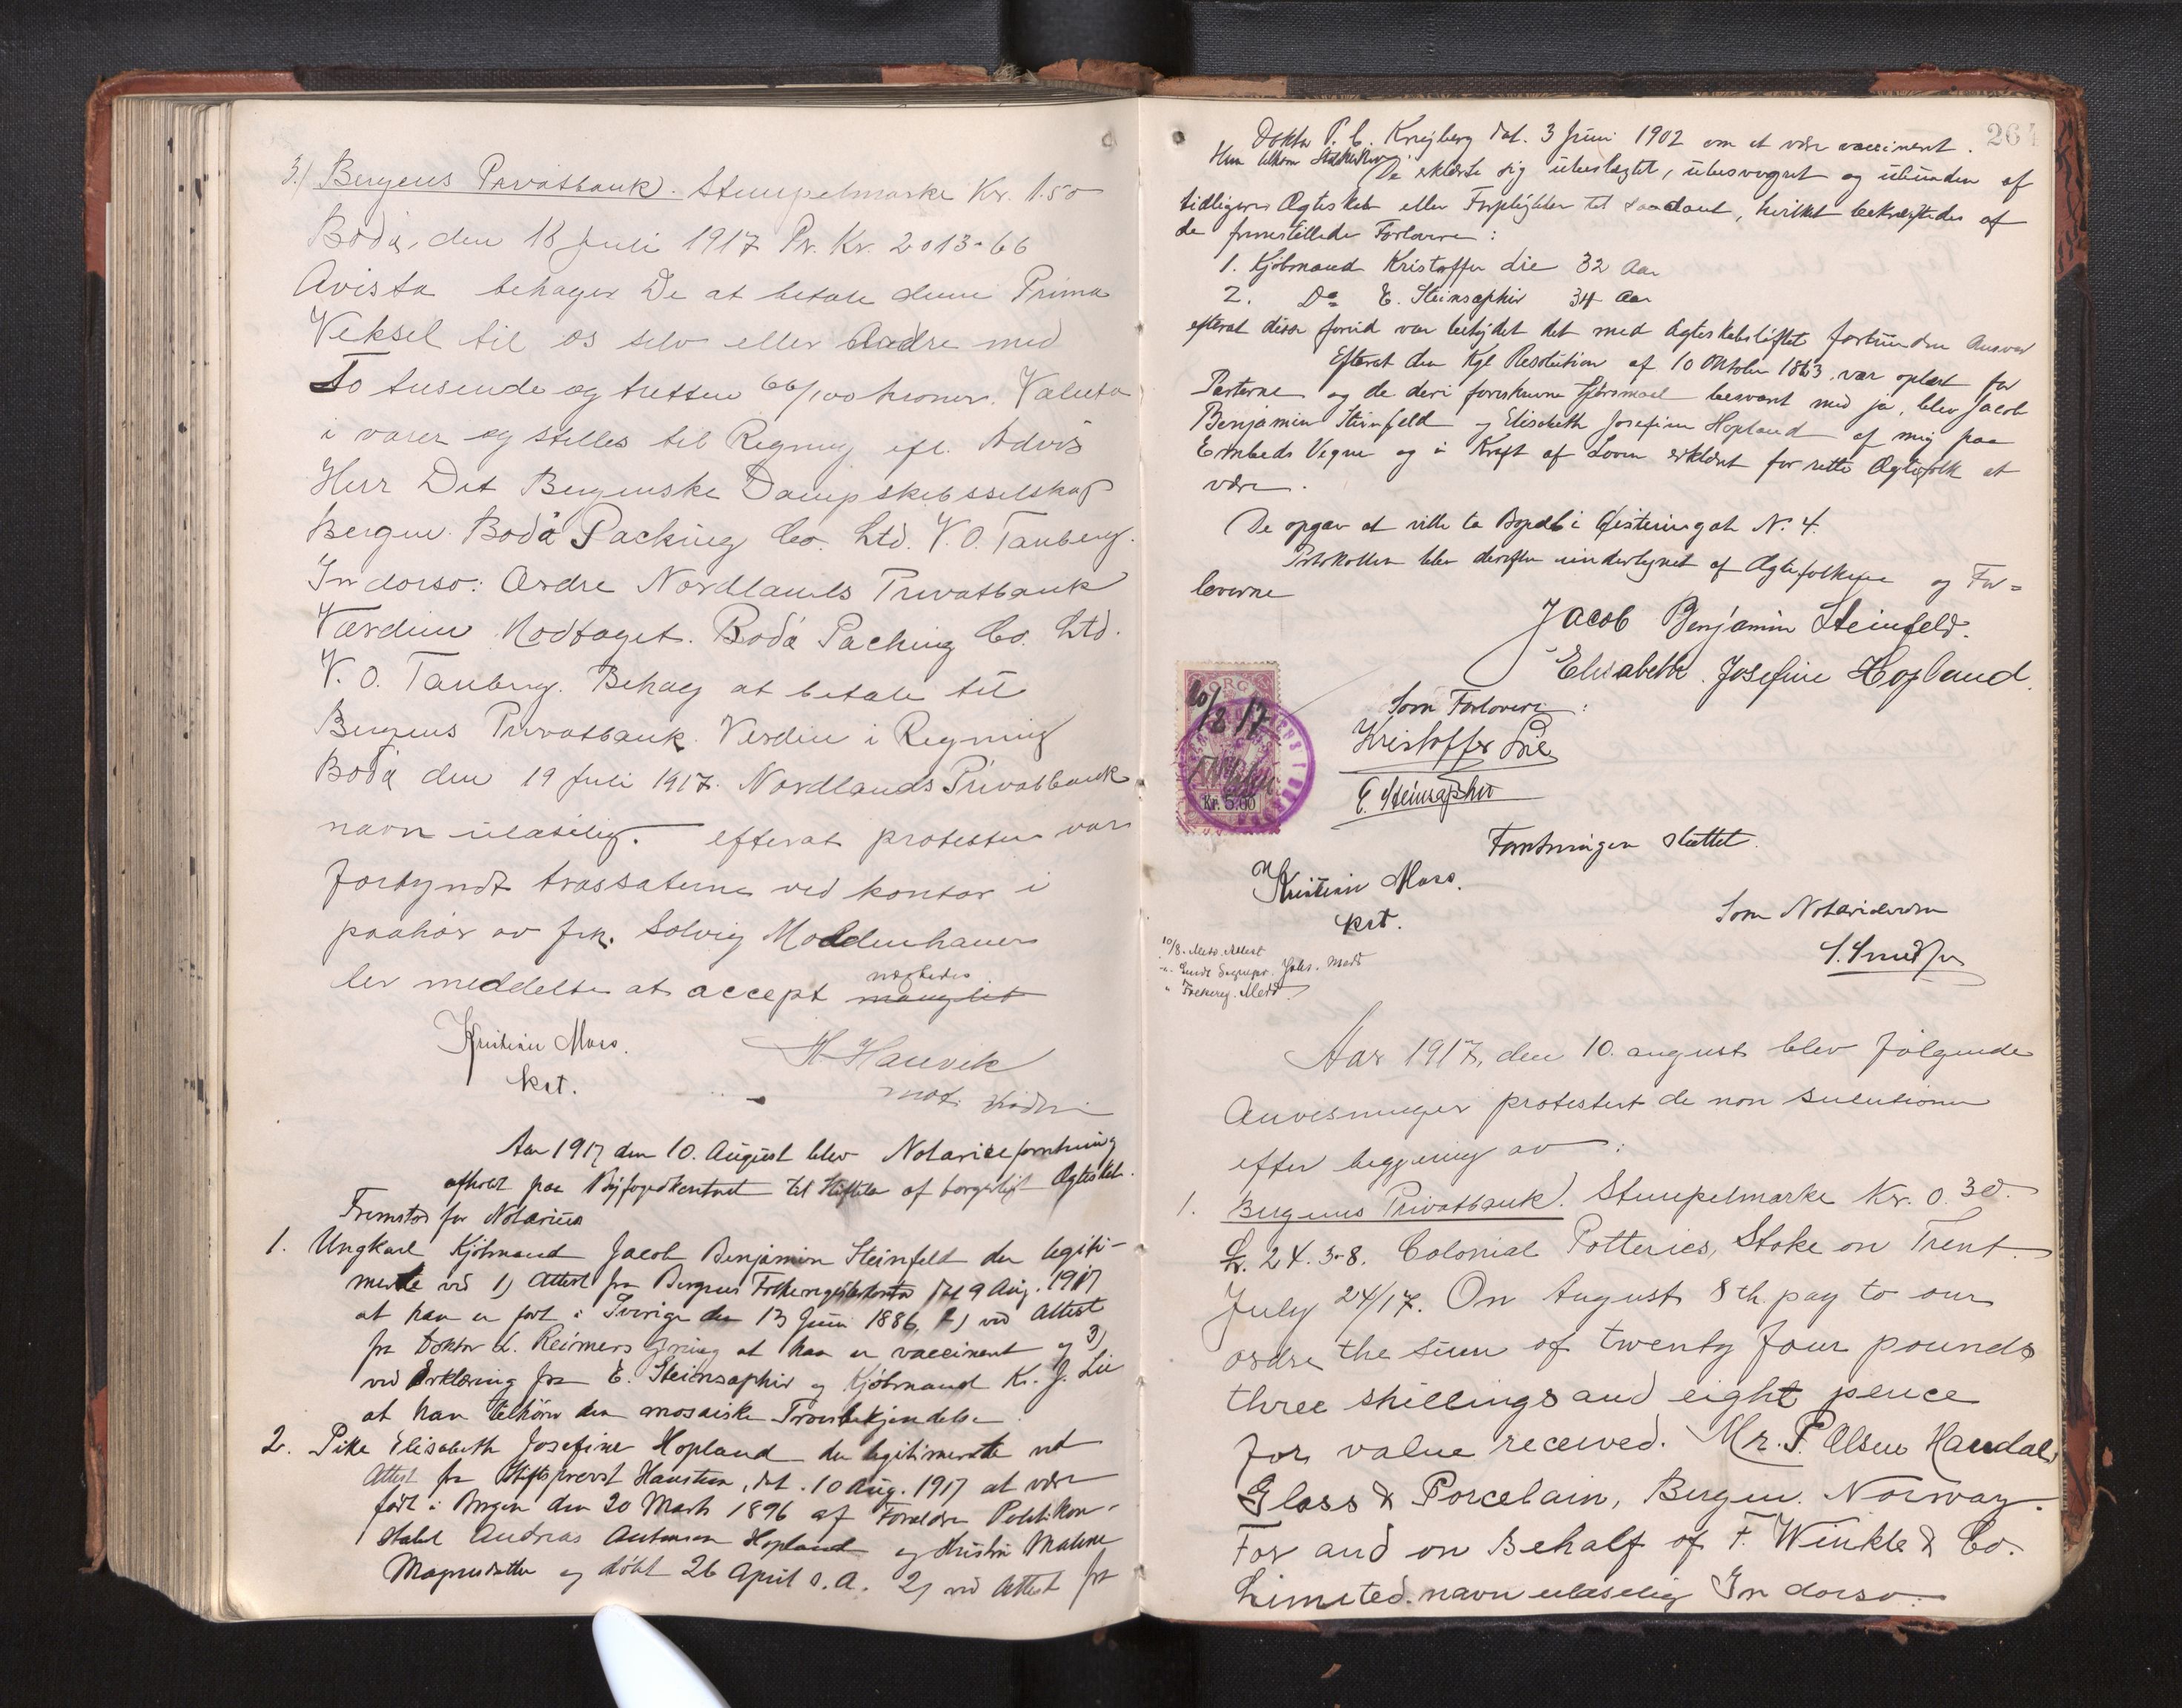 3.) Bergens Privatbank. Stempelmarke Kr. 1.50
Bodø, den 18 Juli 1917 Pr. Kr. 2013-66
Avista behager De at betale denne Prima
Veksel til os selv eller Ordre med
To tusende og tretten 66/100 kroner. Valuta
i varer og stilles til Regning efl. Advis
Herr Det Bergenske Dampskibsselskap
Bergen. Bodø Packing Co. Ltd. V. O. Tanberg.
In dorso: Ordre Nordlands Privatbank
Værdien Modtaget. Bodø Packing Co. Ltd.
V. O. Tanberg. Behag at betale til
Bergens Privatbank. Verdien i Regning
Bodø den 19 Juli 1917. Nordlands Privatbank
navn ulæselig. efterat protesten var
forkyndt trassaterne ved kontor i
paahør av frk. Solvig Moldenhauer
blev meddelt at accept manglet
nægtedes
Kristian Moss.
kst.
H. Hauvik
not.
Aar 1917 den 10. August blev Notarialforretning
afholdt paa Byfogedkontoret til Stiftelse af borgerligt Ægteskab.
Fremstod for Notarius
1. Ungkarl Kjøbmand Jacob Benjamin Steinfeld der legiti-
merte ved 1) Attest fra Bergens Folkeregisterkontor dat 9 Aug. 1917
at han er født i Sverige den 13 Juni 1886, 2) ved Attest
fra Doktor L. Reimers at han er vaccineret og 3)
ved Erklæring fra E. Steinsaphir og Kjøbmand Kr. J. Lie
at han tilhører den mosaiske Troesbekjendelse.
2. Pike Elisabeth Josefine Hopland der legitimerte ved
Attest fra Stiftsprovst Hansteen, dat. 10 Aug. 1917 at være
født i Bergen den 20 Marts 1896 af Foreldre Politikon-
stabel Andreas Antonsen Hopland og Kristine Malene
Magnesdatter og døbt 26 April s. A. 2) ved Attest fra
264
Doktor P. C. Krejberg dat. 3 Juni 1902 om at være vaccineret.
De erklærte sig ubeslægtet, ubesvogret og ubunden af
tidligere Ægteskab eller Forpligtelser til saadant, hvilket bekræftedes af
de fremstillede Forlovere:
1. Kjøbmand Kristoffer Lie 32 Aar
2. Do E. Steinsaphir 34 Aar
efterat disse forud var betydet det med Ægteskabsløftet forbundne Ansvar
Efterat den Kgl Resolution af 10 Oktober 1863 var oplæst for
Parterne og de deri foreskrevne Spørsmaal besvaret med ja, blev Jacob
Benjamin Steinfeld og Elisabeth Josefine Hopland af mig paa
Embeds Vegne og i Kraft af Loven erklæret for rette Ægtefolk at
være.
De opgav at ville ta Bopæl i Øisteinsgate N: 4.
Protokollen blev derefter undertegnet af Ægtefolkene og For=
loverne
Jacob Benjamin Steinfeld.
Elisabeth Josefine Hopland.
Som Forlovere:
Kristoffer Lie
E. Steinsaphir
10/8 17
Kr. 5.00
Forretningen sluttet.
Kristian Moss.
kst.
Som Notarius
10/8. Medd. Attest
" Folkereg. Medd
Aar 1917, den 10. august blev følgende
Anvisninger protestert de non solutione
efter begjering av:
1. Bergens Privatbank). Stempelmarke Kr. 0.30.
£. 24. 3-8. Colonial Potteries, Stoke on Trent.
July 24/17. On August 8th pay to our
ordre the sum of twenty four pounds
three shillings and eight pence
for value received. Mr. P. Olsen Handal,
Glass & Porcelain, Bergen. Norway.
For and on Behalf of F. Winkle & Co.
Limited. navn ulæselig In dorso: